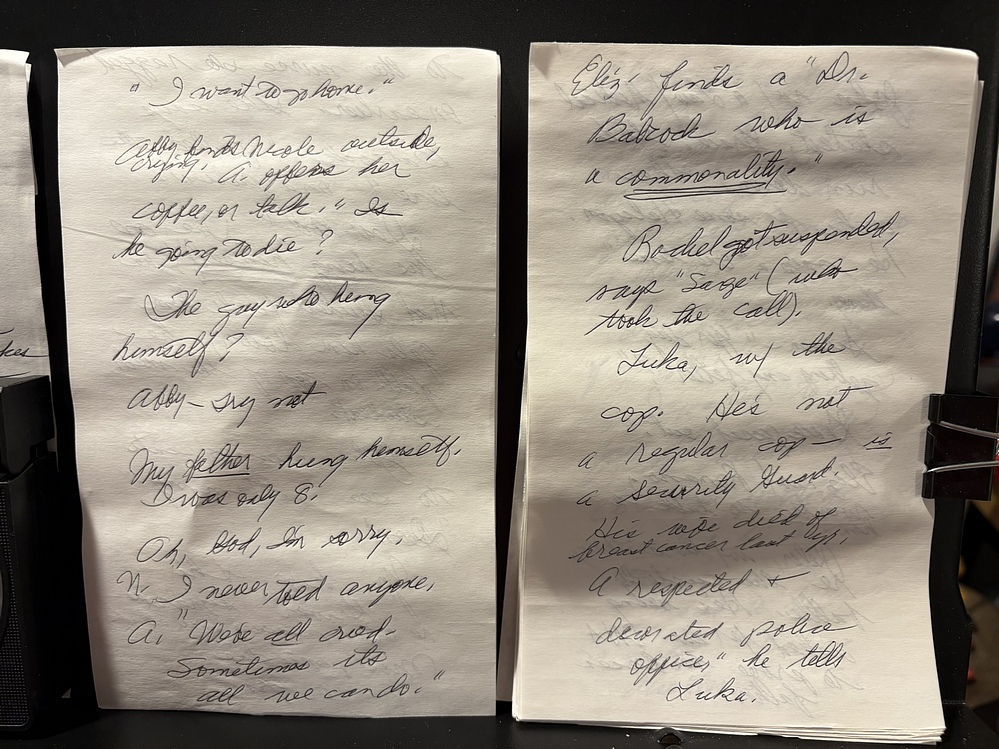 " I want to go home."
Abby finds Nicole outside,
crying. A. offers her
coffee, or talk. " Is
he going to die ?
The guy who hung
himself ?
Abby —  not
My father hung himself.
I was only 8.
Oh, God, I'm sorry.
N. I never told anyone.
A. " We've all cried-
Sometimes its
all we can do."
Eliz' finds a "Dr.
Babcock who is
a commonality."
Rachel got suspended,
says "Sarge" ( who
took the call).
Luka, w/ the
cop. He's not
a regular cop — is
a security guard.
His wife died of
breast cancer last yr.
A respected +
decorated police
officer" he tells
Luka.